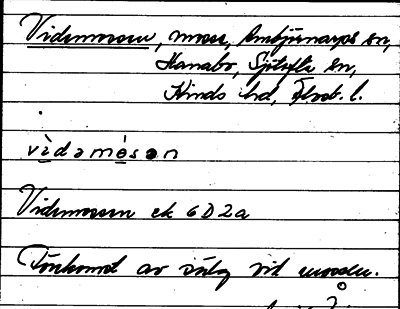 Videmossen, mosse, Ambjörnarps sn,
Hanabo, Sjötofta sn,
Kinds hd, Älvsb. l.
vìdəmòsən
Videmossen ek 6D2a
Förekomst av sälg vid mossen.